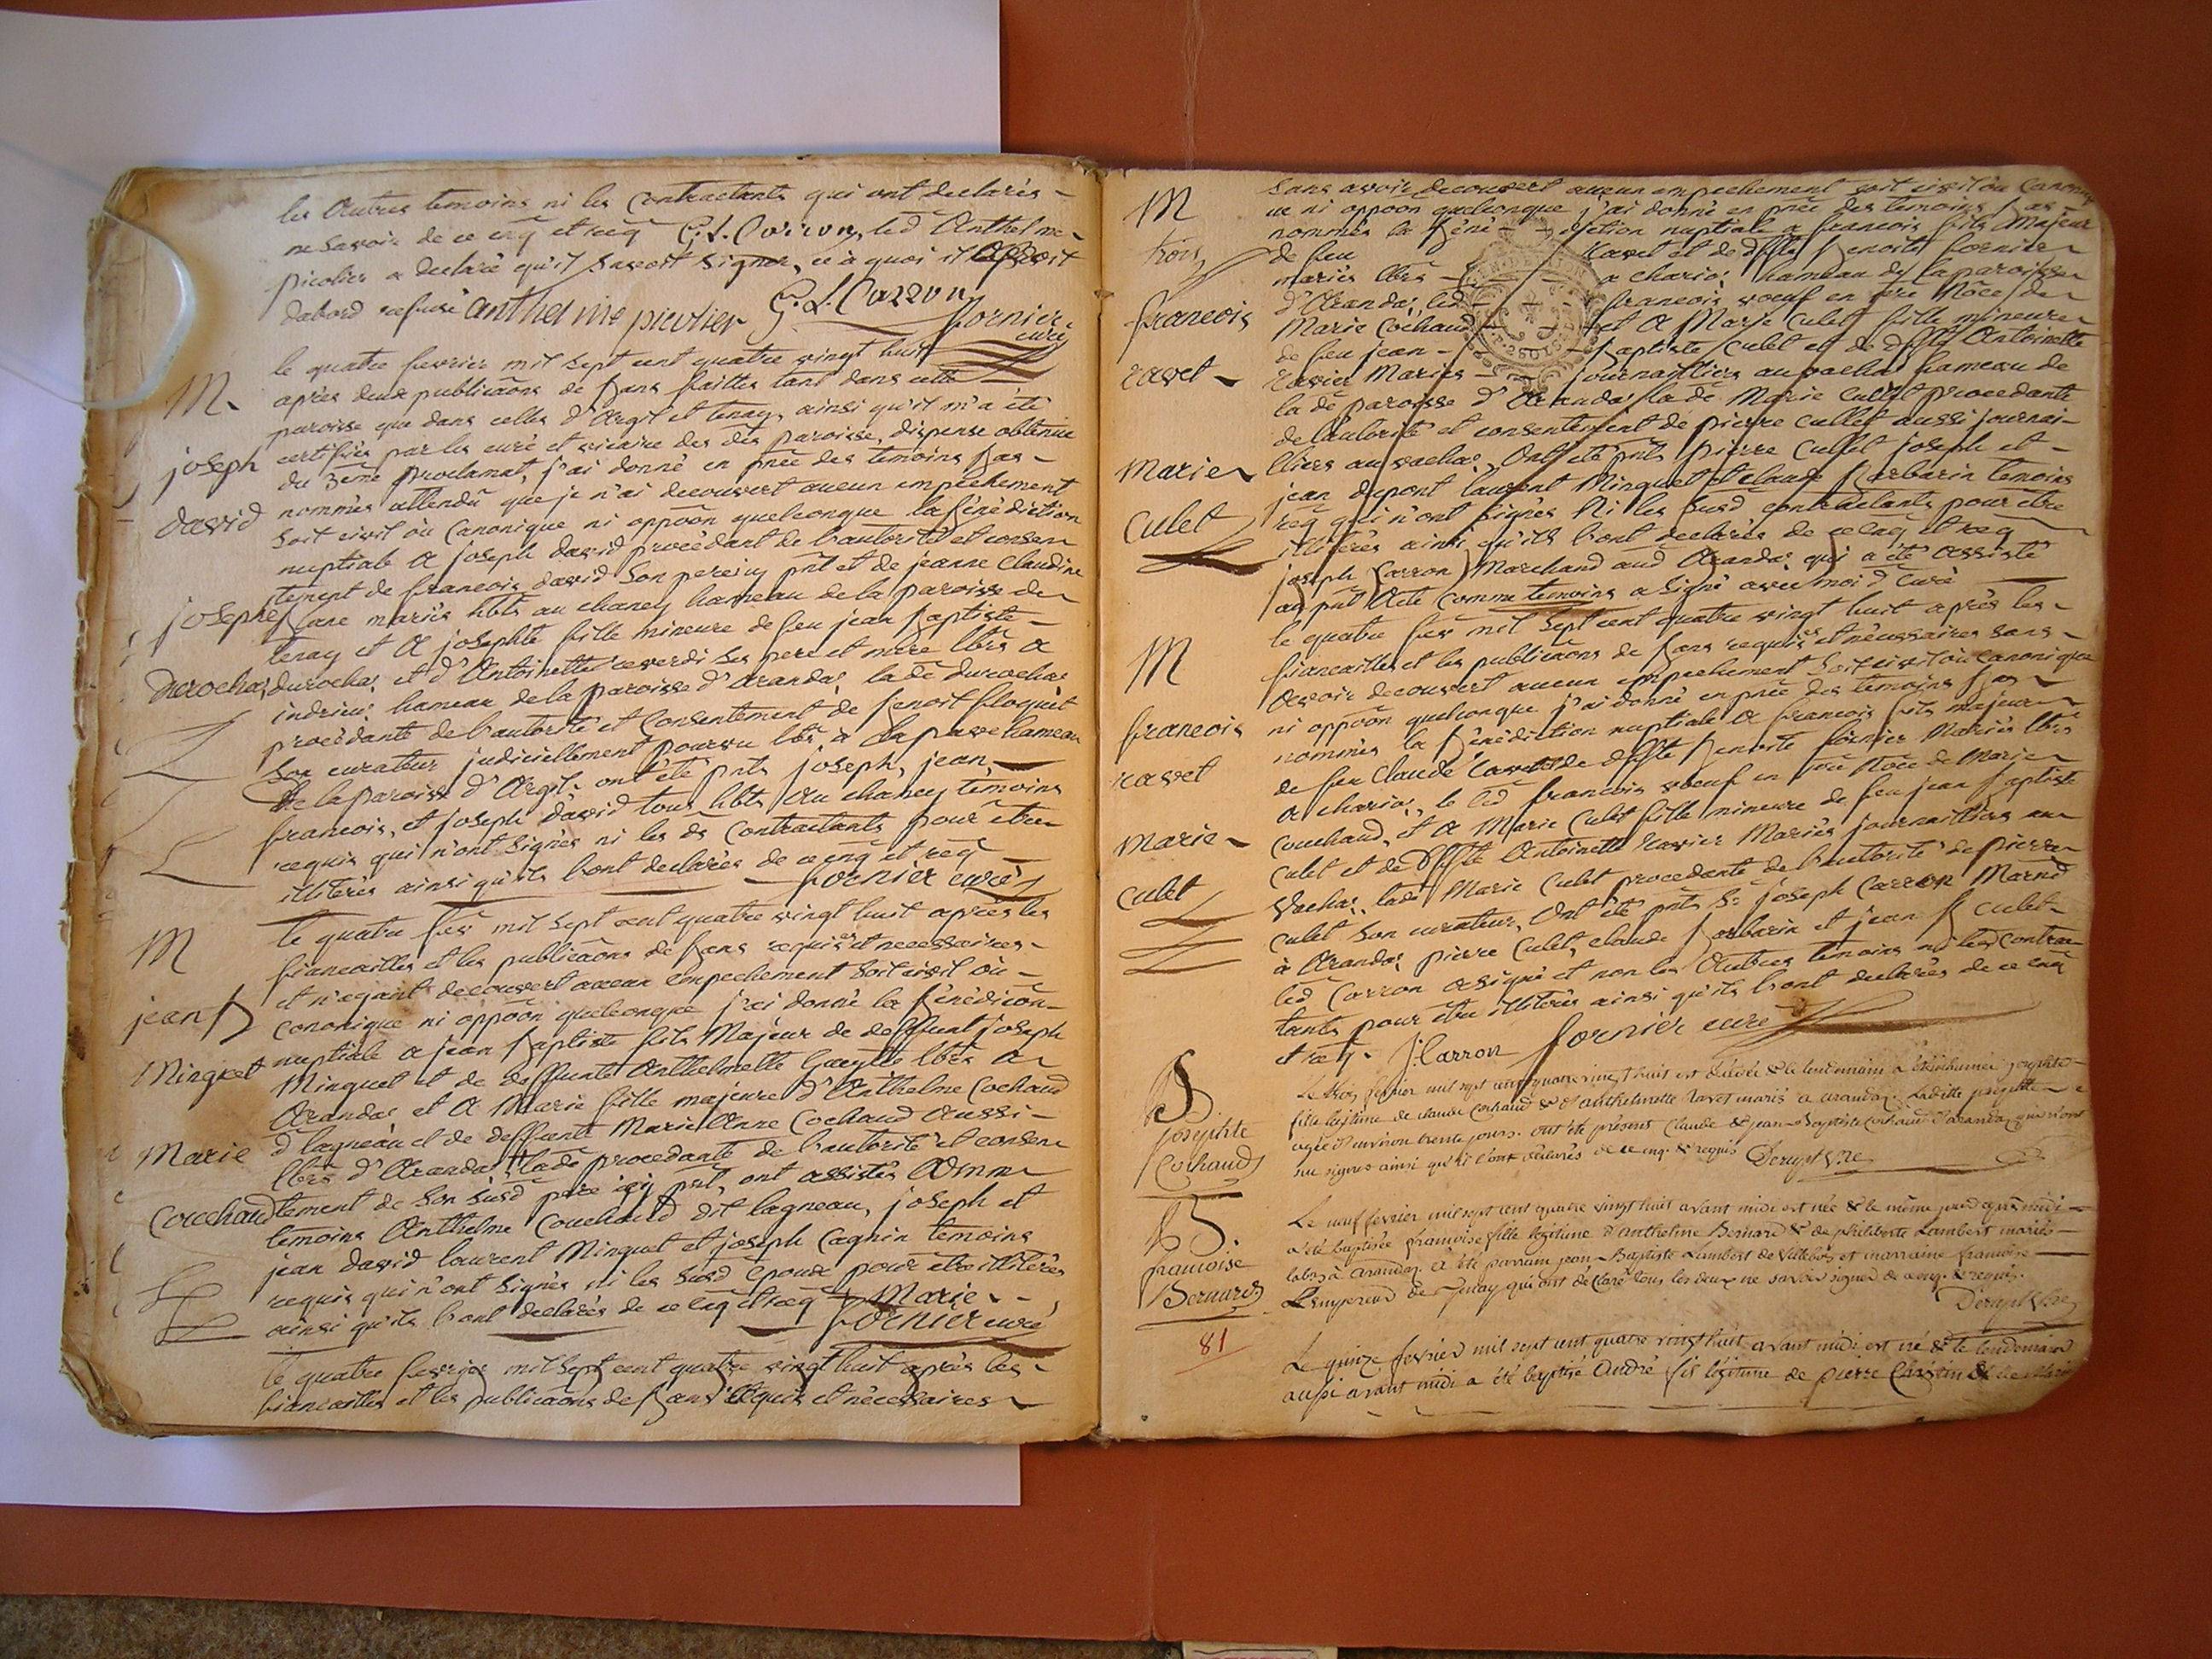 les Autres temoins ni les Contractants qui ont declarés
ne savoir de ce enq et req G. L. Carron, led Anthelme
picolier a declaré qu'il savoit signer, ce à quoi il
dabord refusé anthelme picolier G. L. Carron
fornier
curé
M.
joseph
david
josephte
durochas
le quatre fevrier mil sept cent quatre vingt huit
après deux publicaõns de bans faittes tant dans cette
paroisse que dans celles d'Argit et tenay, ainsi qu'il m'a été
certifiés par les curé et vicaire des des paroisse, dispense obtenue
du 3eme proclamat, j'ai donné en pnce des temoins bas
nommés attendu que je n'ai decouvert aucun empechement
soit civil où Canonique ni oppoõn quelconque la bénédiction
nuptiale a joseph david procédant de l'autorité et consen
tement de francois david son pere icy pnt et de jeanne Claudine
bane mariés hbts au chaney hameau de la paroisse de
tenay et a josephte fille mineure de feu jean baptiste
durochas et d'Antoinette reverdi ses pere et mere lbrs a
indrieu hameau de la paroisse d'arandas la de durochas
procédante de l'autorité et Consentement de benoit floquet
son curateur judiciellement pourvu lbr a hameau
de la paroisse d'Argit. ont été pnts joseph, jean
francois, et joseph david tous hbts du chaney temoins
requis qui n'ont signés ni les ds Contractants pour être
illiterés ainsi qu'ils l'ont declarés de ce enq et req
fornier curé
M
jean B
Minguet
Marie
Couchaud
le quatre fev mil sept cent quatre vingt huit après les
fiancailles et les publicaõns de bans requises et necessaires
et n'ayant decouvert aucun empechement soit civil où
canonique ni oppoõn quelconque j'ai donné la bénédicõn
nuptiale a jean baptiste fils Majeur de deffunt joseph
Minguet et de deffunte Anthelmette lbrs a
Arandas et a Marie fille majeure d'Anthelme Cochaud
d lagneau et de deffunte Marie Anne Cochaud Aussi
lbrs d'Arandas, lade procedante de l'autorité et consen
tement de son susd pere icy pnt, ont assistés comme
temoins Anthelme Couchaud dit lagneau, joseph et
jean david laurent Minguet et joseph Cagnin temoins
requis qui n'ont signés ni les susd époux pour etre illiterés
ainsi qu'ils l'ont declarés de ce enq et req Marie
fornier curé
le quatre fevrier mil sept cent quatre vingt huit après les
fiancailles et les publicaõns de bans requis et nécessaires
M
trois
francois
ravet
Marie
Culet
sans avoir decouvert aucun empechement soit civil où Canoniq
ue ni oppoõn quelconque j'ai donné en pnce des temoins bas
nommés la béné - - diction nuptiale a francois fils Majeur
de feu ravet et de dffte benoite fornier
mariés lbrs - a charios hameau de la paroisse
d'Arandas, led francois voeuf en 1ere Nôce de
Marie Cochaud et a Marie Culet fille mineure
de feu jean - baptiste Culet et de dffte Antoinette
ravier Mariés journailliers au vachat hameau de
la de paroisse d'Arandas lade Marie Cullet procedante
de l'autorité et consentement de pierre cullet aussi journai-
lliers au vachat. Ont été pnts pierre Cullet joseph et
jean dupont laurent Minguet et claude barbarin temoins
req qui n'ont signés Ni les susd contractants pour etre
illiterés ainsi qu'ils l'ont declarés de ce enq et req
joseph Carron Marchand aud Arandas qui a été assisté
au pnt Acte comme temoins a signé avec moi d Curé
M
francois
ravet
Marie
culet
le quatre fev mil sept cent quatre vingt huit après les
fiancailles et les publicaõns de bans requises et nécessaires sans
avoir decouvert aucun empechement soit civil où Canonique
ni oppoõn quelconque j'ai donné en pnce des temoins bas
nommés la bénédiction nuptiale a francois fils majeur
de feu Claude ravet de dffte benoite fornier Mariés lbrs
a charios, le led francois voeuf en 1ere Nôce de Marie
Couchaud, et a Marie Culet fille mineure de feu jean baptiste
Culet et de Dffte Antoinette ravier Mariés journailliers au
Vachat. lade Marie Culet procedante de l'autorité de pierre
Culet son curateur, Ont été pnts Sr joseph Carron Marnd
à Arandas, pierre Culet, claude barbarin et jean B Culet
led Carron a signé et non les Autres temoins ni lesd contrac
tants pour être illiterés ainsi qu'ils l'ont declarés de ce enq
et req. J: Carron fornier curé
S
josephte
Cochaud
Le trois février mil sept cent quatre vingt huit est décédée & le lendemain a été inhumée josephte
fille légitime de claude Cochaud & d'anthelmette Ravet mariés a arandas. Laditte josephte
agée d'environ trente jours. ont été présent Claude & jean-Baptiste Cochaud d'arandas qui n'ont
su signer ainsi qu'ils l'ont déclarés de ce enq. & requis
B.
francoise
Bernard
Le neuf février mil sept cent quatre vingt huit avant midi est née & le même jour après midi
a été baptisée francoise fille légitime d'anthelme Bernard & de philiberte Lambert mariés
labrs à arandas. à été parrain jean-Baptiste Lambert de et marraine francoise
de qui ont déclaré tous les deux ne savoir signer de ce enq. & requis.
81
Le quinze fevrier mil sept cent quatre vingt huit avant midi est né & le lendemain
aussi avant midi a été baptisé André fils légitime de pierre